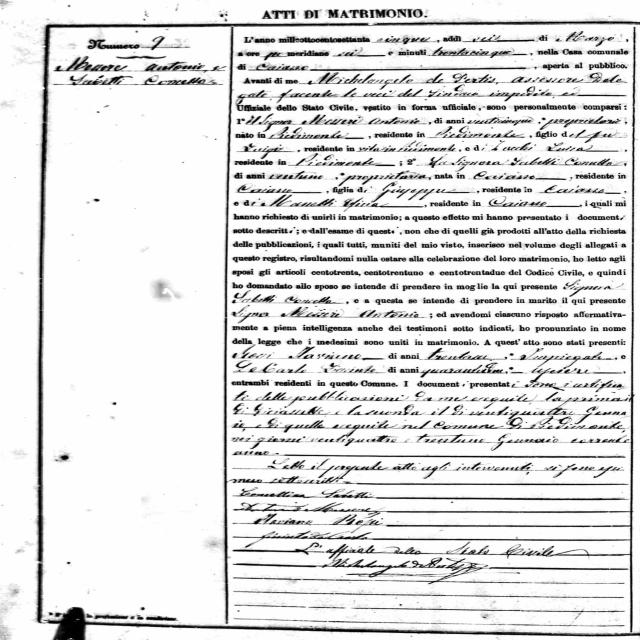 ATTI DI MATRIMONIO.
Numero 9
Messere Antonio, e
Sabetti Concetta
L'anno millottocentosettanta cinque, addì sei di Marzo,
a ore meridiane sei e minuti trentacinque, nella Casa comunale
di Caiazzo, aperta al pubblico.
Avanti di me Michelangelo de Pertis, assessore Dele
gato facente le veci del Sindaco impedito, ed
Uffiziale dello Stato Civile, vestito in forma ufficiale, sono personalmente comparsi:
1° Il Signor Messeri Antonio, di anni venticinque, proprietario,
nato in Piedimonte, residente in Piedimonte, figlio del fu
Luigi, residente in vita in Piedimonte, e di Luisa
residente in Piedimonte; 2° La Signora Sabetti Concetta,
di anni ventuno, proprietaria, nata in Caiazzo, residente in
Caiazzo, figlia di Giuseppe, residente in Caiazzo,
e di, residente in Caiazzo, i quali mi
hanno richiesto di unirli in matrimonio; a questo effetto mi hanno presentati i document
sotto descritti; e dall'esame di questi, non che di quelli già prodotti all'atto della richiesta
delle pubblicazioni, i quali tutti, muniti del mio visto, inserisco nel volume degli allegati a
questo registro, risultandomi nulla ostare alla celebrazione del loro matrimonio, ho letto agli
sposi gli articoli centotrenta, centotrentuno e centotrentadue del Codice Civile, e quindi
ho domandato allo sposo se intende di prendere in moglie la qui presente Signora
Sabetti Concetta, e a questa se intende di prendere in marito il qui presente
Signor Messeri Antonio; ed avendomi ciascuno risposto affermativa-
mente a piena intelligenza anche dei testimoni sotto indicati, ho pronunziato in nome
della legge che i medesimi sono uniti in matrimonio. A quest' atto sono stati presenti:
di anni trentadue, Impiegato, e
De Carlo di anni quarantuno, Usciere,
entrambi residenti in questo Comune. I documenti presentati sono i certifica
ti delle pubblicazioni da me eseguite, la prima il
di e la seconda il di ventiquattro Genna
io, e di quelle eseguite nel Comune di Piedimonte,
nei giorni ventiquattro e trentuno Gennaio corrente
anno.
Letto il presente atto agli intervenuti, si sono essi
meco sottoscritti.
Concettina Sabetti
Antonio Messere
L'uffiziale dello Stato Civile
Michelangelo de Pertis